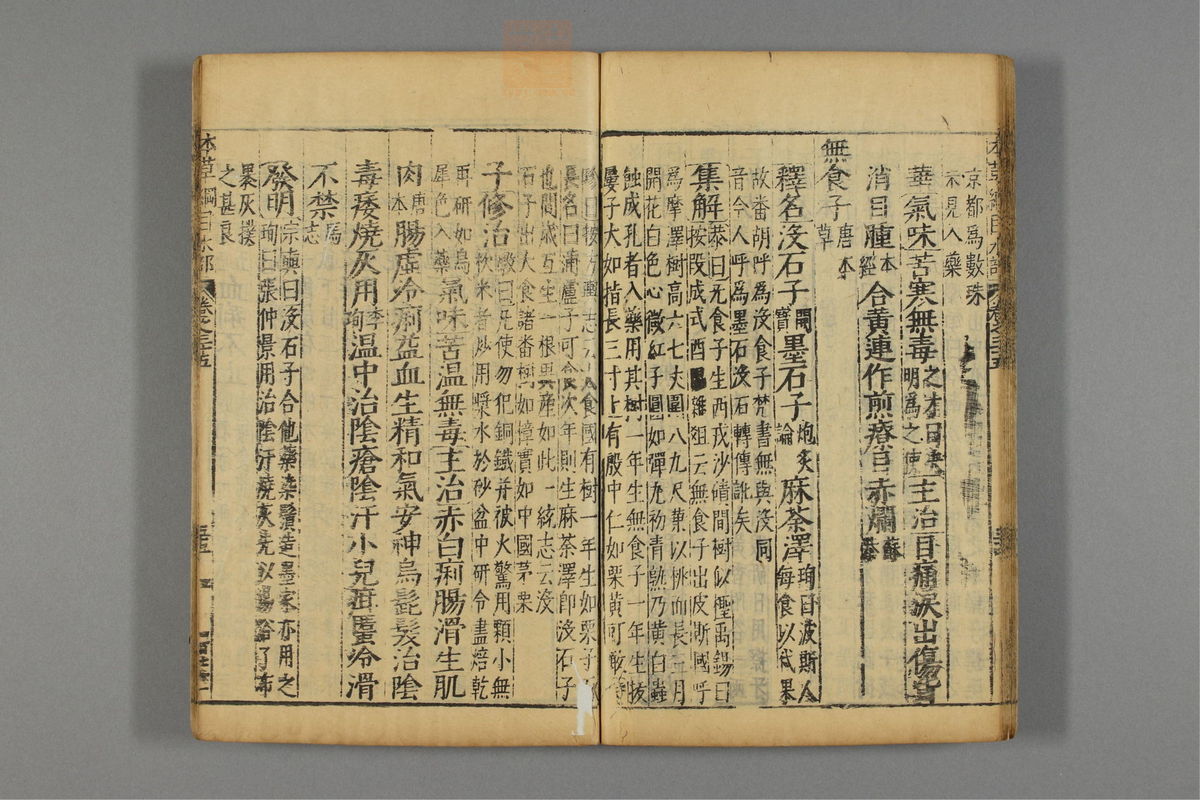 京都為數珠
未見入藥
華氣味苦寒無毒之才曰決明為之使主治目痛淚出傷眥
消目腫本經合黃連作煎療目赤爛蘇恭
無食子唐本草
釋名沒石子開寶墨石子炮炙論麻荼澤珣曰波斯人每食以代果
故番胡呼為沒食子梵書無與沒同
音今人呼為墨石沒石轉傳訛矣
集解恭曰無食子生西戎沙磧間樹似檉禹錫曰
按段成式雜俎云無食子出波斯國呼
為摩澤樹高六七丈圍八九尺葉以桃而長三月
開花白色心微紅子圓如彈丸初青熟乃黃白蟲
蝕成孔者入藥用其樹一年生無食子一年生拔
屢子大如指長三寸上有殼中仁如栗黃可噉
珍曰按方輿志云大食國有樹一年生如栗子
長名曰蒲盧子可食次年則生麻荼澤即沒石子
也間歲互生一根異產如此一統志云沒
石子出大食諸番樹如樟實如中國茅栗
子修治斅曰凡使勿犯銅鐵并被火驚用顆小無
枕米者炒用漿水於砂盆中研令盡焙乾
再研如烏
犀色入藥氣味苦溫無毒主治赤白痢腸滑生肌
肉唐本腸虛冷痢益血生精和氣安神烏髭髮治陰
毒痿燒灰用李珣溫中治陰瘡陰汗小兒疳䘌冷滑
不禁馬志
發明宗奭曰沒石子合他藥染鬚造墨家亦用之
珣曰張仲景用治陰汗燒灰先以湯浴了布
裹灰撲
之甚良
本草綱目木部 卷之三十五